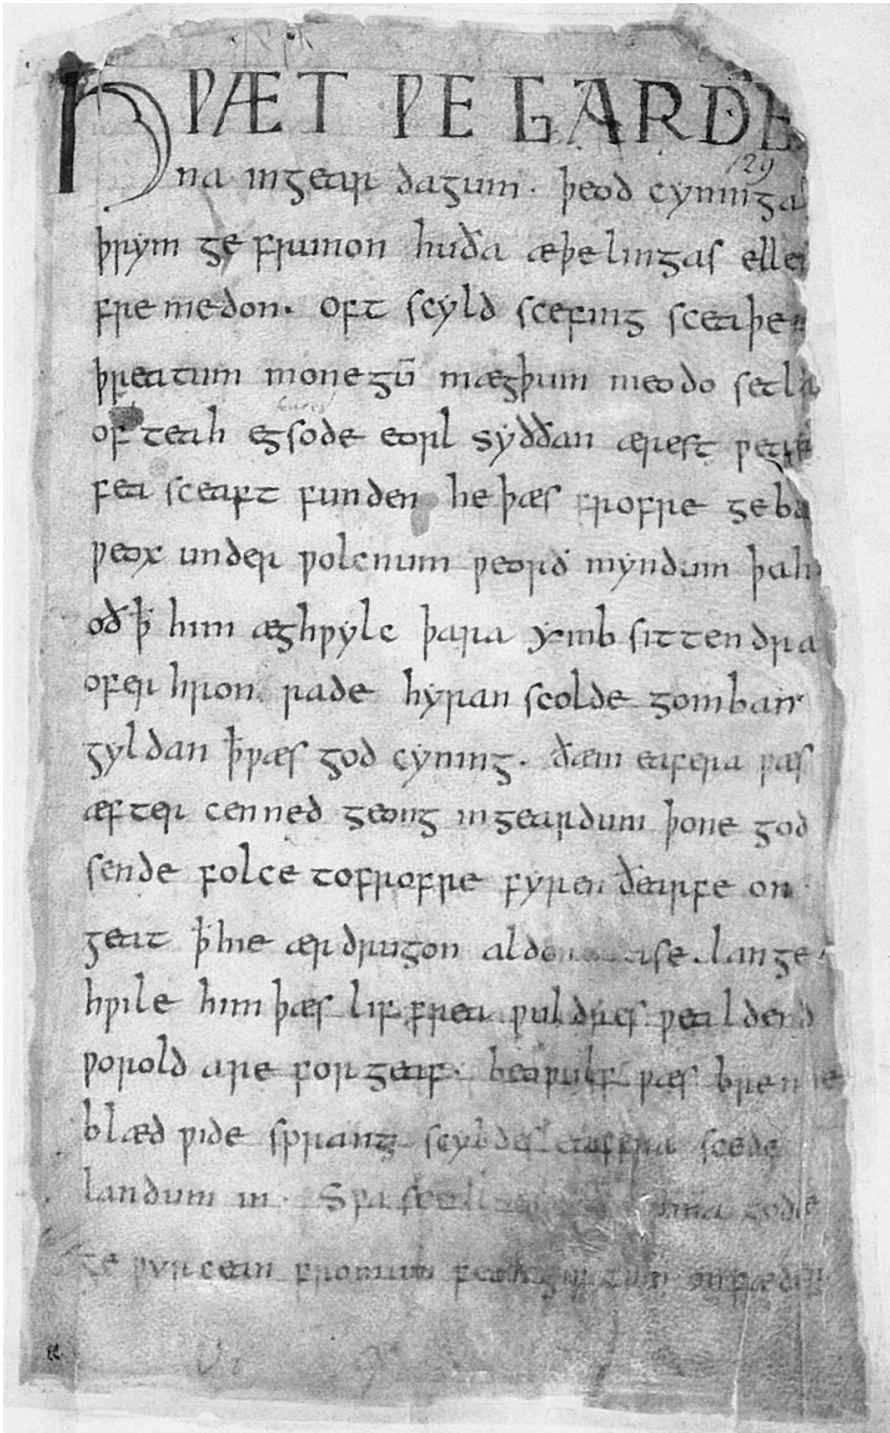 HǷÆT ǷE GARDE
na ingear dagum. þeod cyninga
þrym ge frunon huða æþelingas elle
fre medon. oft scyld scefing sceaþe
þreatum monegū mægþum meodo setla
of teah egsode eorl syððan ærest ƿear
fea sceaft funden he þæs frofre geba
ƿeox under ƿolcnum ƿeorð myndum þah
oð ꝥ him æghƿylc þara ymb sittendra
ofer hron rade hyran scolde gomban
gyldan ꝥ ƿæs god cyning. ðæm eafera ƿæs
æfter cenned geong ingeardum þone god
sende folce tofrofre fyren ðearfe on
geat ꝥ hie ær drugon aldo ase. lange
hƿile him þæs lif frea ƿuldres ƿealdend
ƿorold are for geaf. beoƿulf ƿæs breme
blæd ƿide sprang scyldes eafera scede
landum in. Sƿa sceal uma gode
ge ƿyrcean fromum feoh giftum on fæder